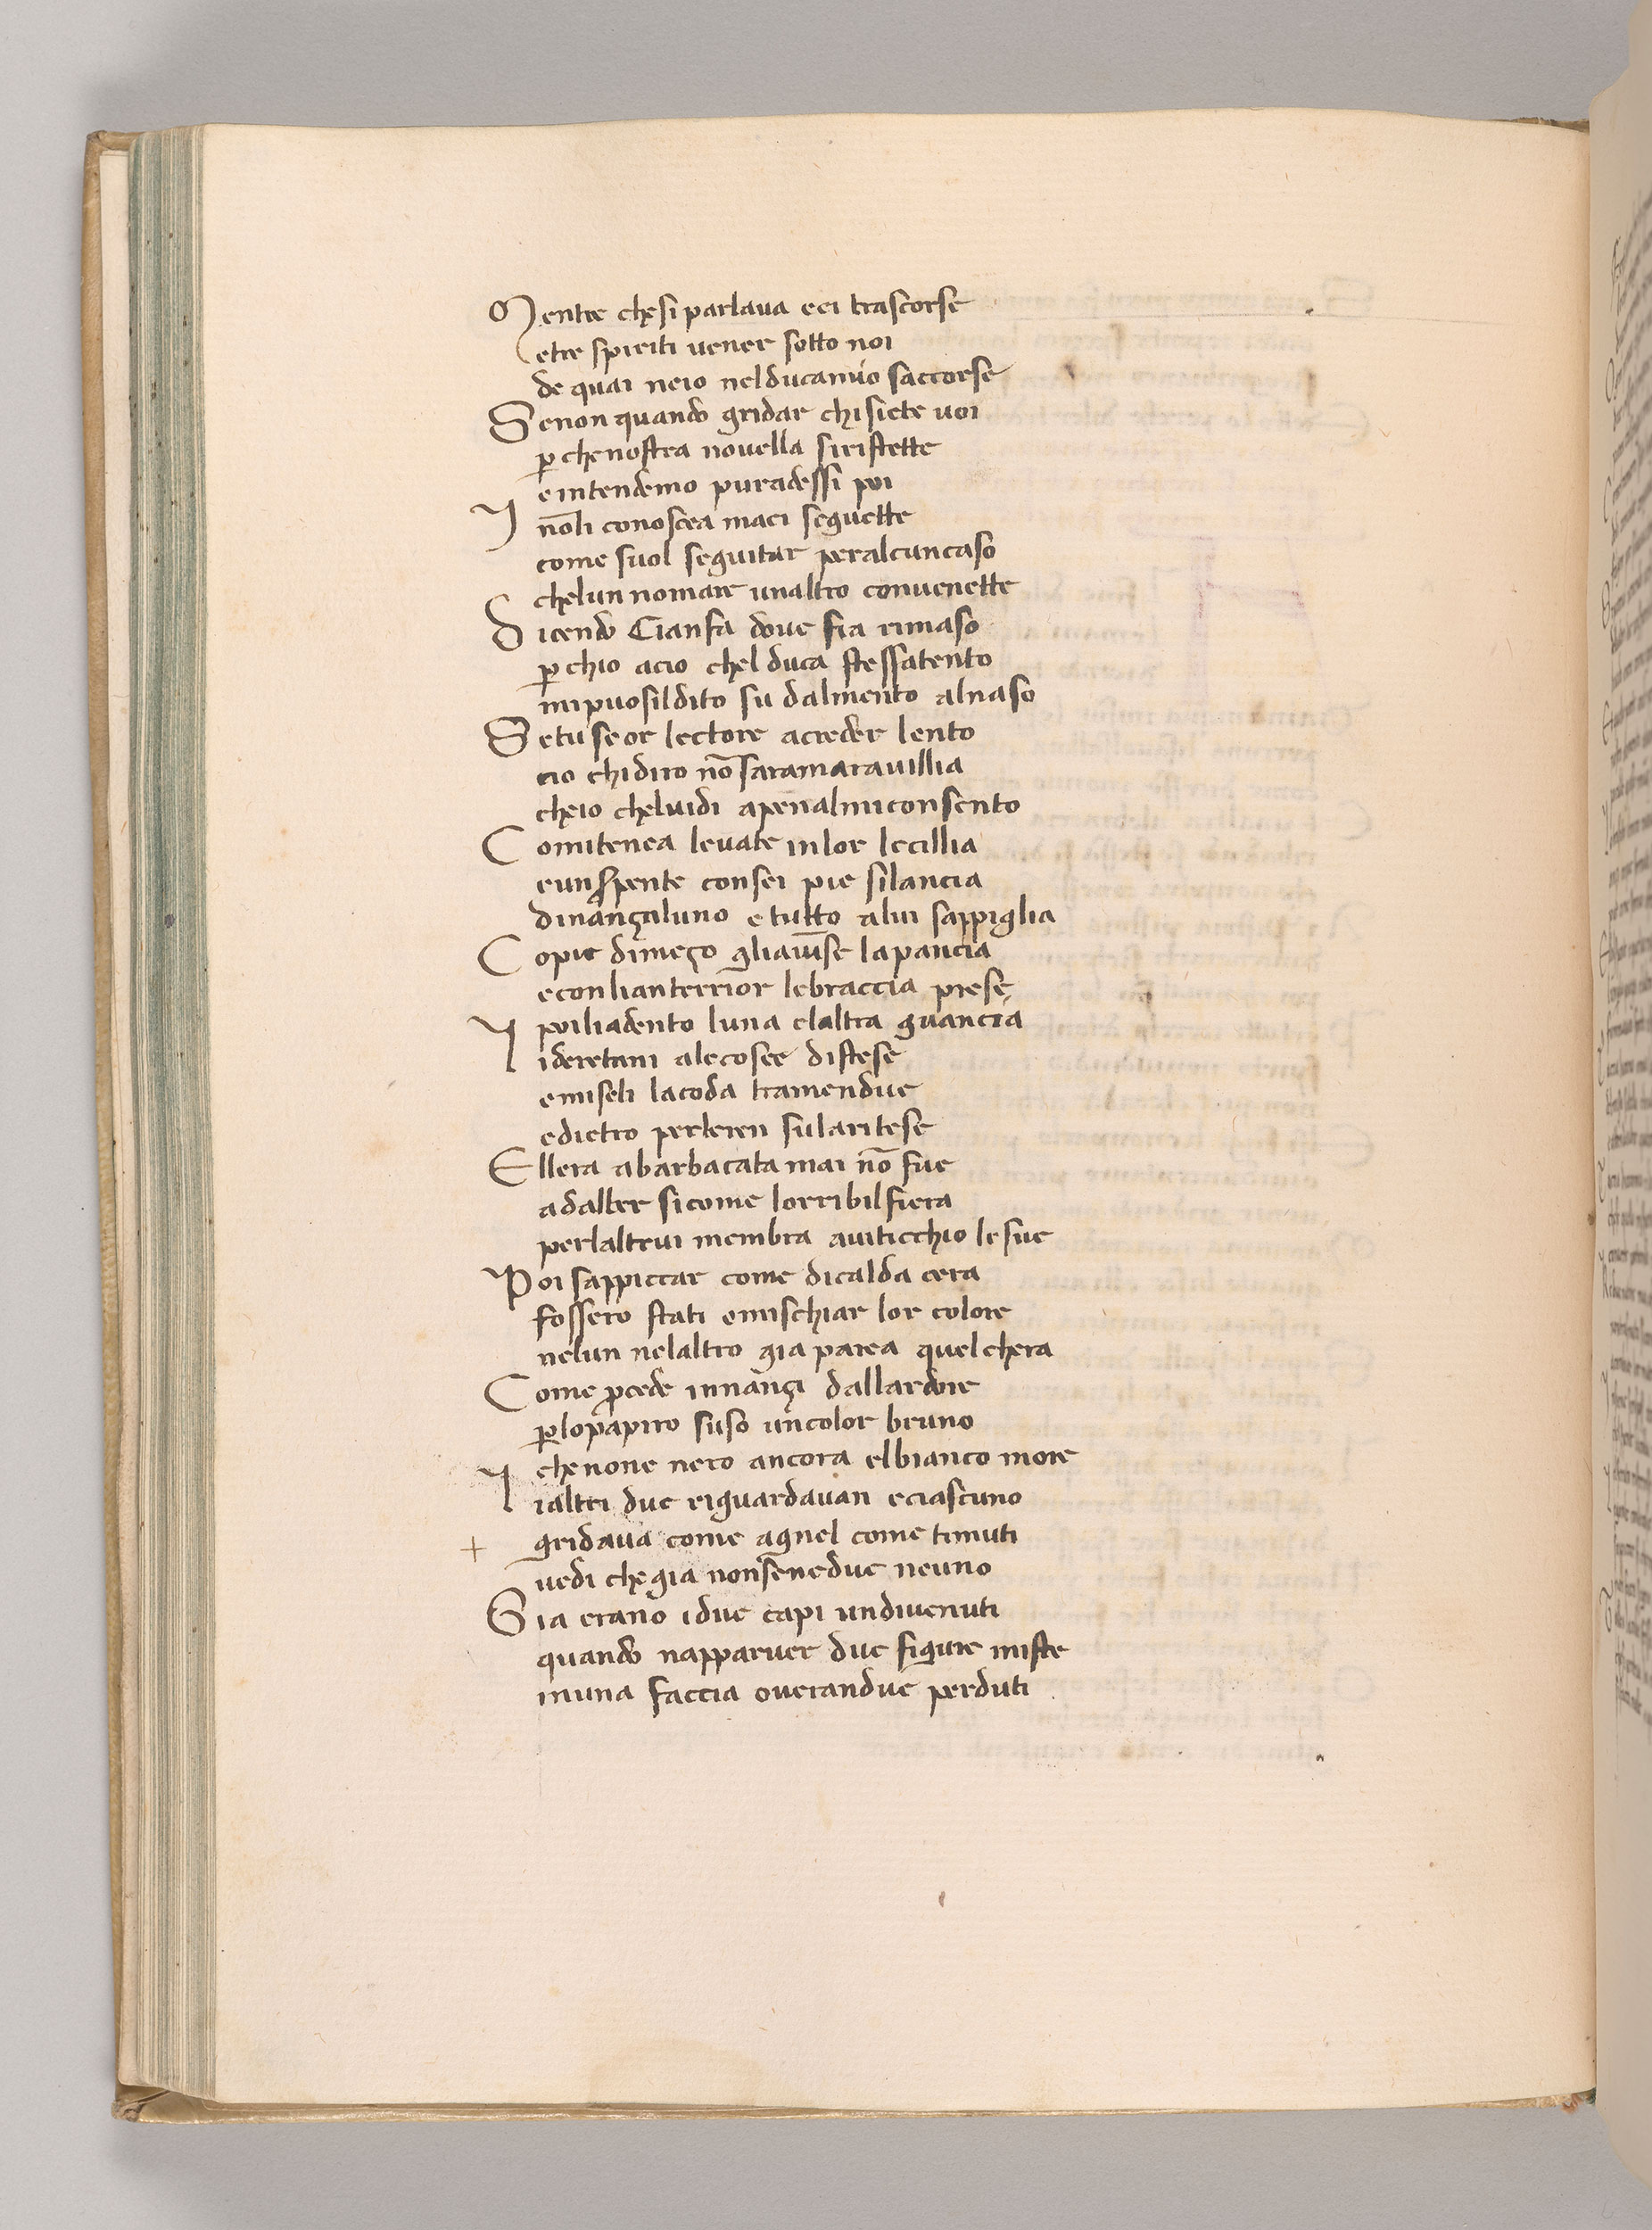 Mentre chesi parlaua eei trascorse
etre spiriti uener sotto noi
de quai neio nelducamio saccorse
Senon quando gridar chi siete uoi
p̱ che nostra nouella siristette
eintendemo puradessi poi
I nōli conoscea maei seguette
come suol seguitar peralcuncaso
chelun nomare unaltro conuenette
Dicendo Cianfa doue fia rimaso
p̱ chio acio chel duca stessatento
mipuosildito su dalmento alnaso
Setuseor lectore acreder lento
cio chidiro nō saramarauillia
cheio cheluidi apenalmiconsento
Comitenea leuate inlor lecillia
eunsꝑpente consei pie silancia
dinançialuno e tutto alui sappiglia
Copie dimeço gliauīse lapancia
econlianterrior lebraccia prese
poiliadento luna elaltra guancia
I ideretani alecosce distese
emiseli lacoda tramendue
edietro perleren sularitese
Ellera abarbacata mai nō fue
adalber sicome lorribilfiera
perlaltrui membra auiticchio lesue
Poi sappiccar come dicalda cera
fossero stati emischiar lor colore
nelun nelaltro gia parea quelchera
Come ꝓcede innançi dallardore
p̱lopapiro suso uncolor bruno
chenone nero ancora elbianco more
I ialtri due riguardauan eciascuno
+ gridaua come agnel come timuti
uedi chegia nonsenedue neuno
Gia erano idue capi undiuenuti
quando napparuer due figure miste
inuna faccia ouerandue perduti